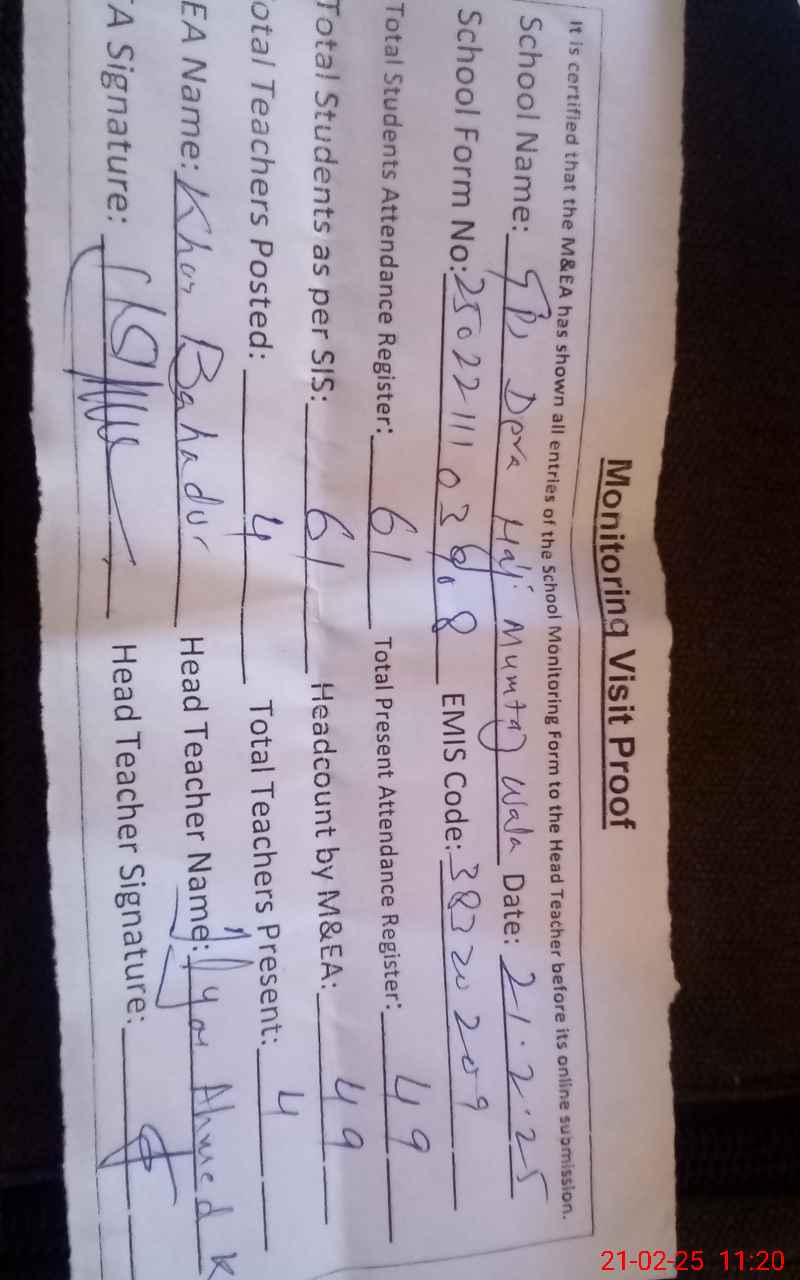 Monitoring Visit Proof
It is certified that the M&EA has shown all entries of the School Monitoring Form to the Head Teacher before its online submission.
School Name: Dera Haji Mumtaz Wala Date: 21.2.25
School Form No: EMIS Code: 38320209
Total Students Attendance Register: 61 Total Present Attendance Register: 49
Total Students as per SIS: 61 Headcount by M&EA: 49
otal Teachers Posted: 4 Total Teachers Present: 4
EA Name: Khan Bahadur Head Teacher Name: Ahmed K
A Signature: Head Teacher Signature:
21-02-25 11:20